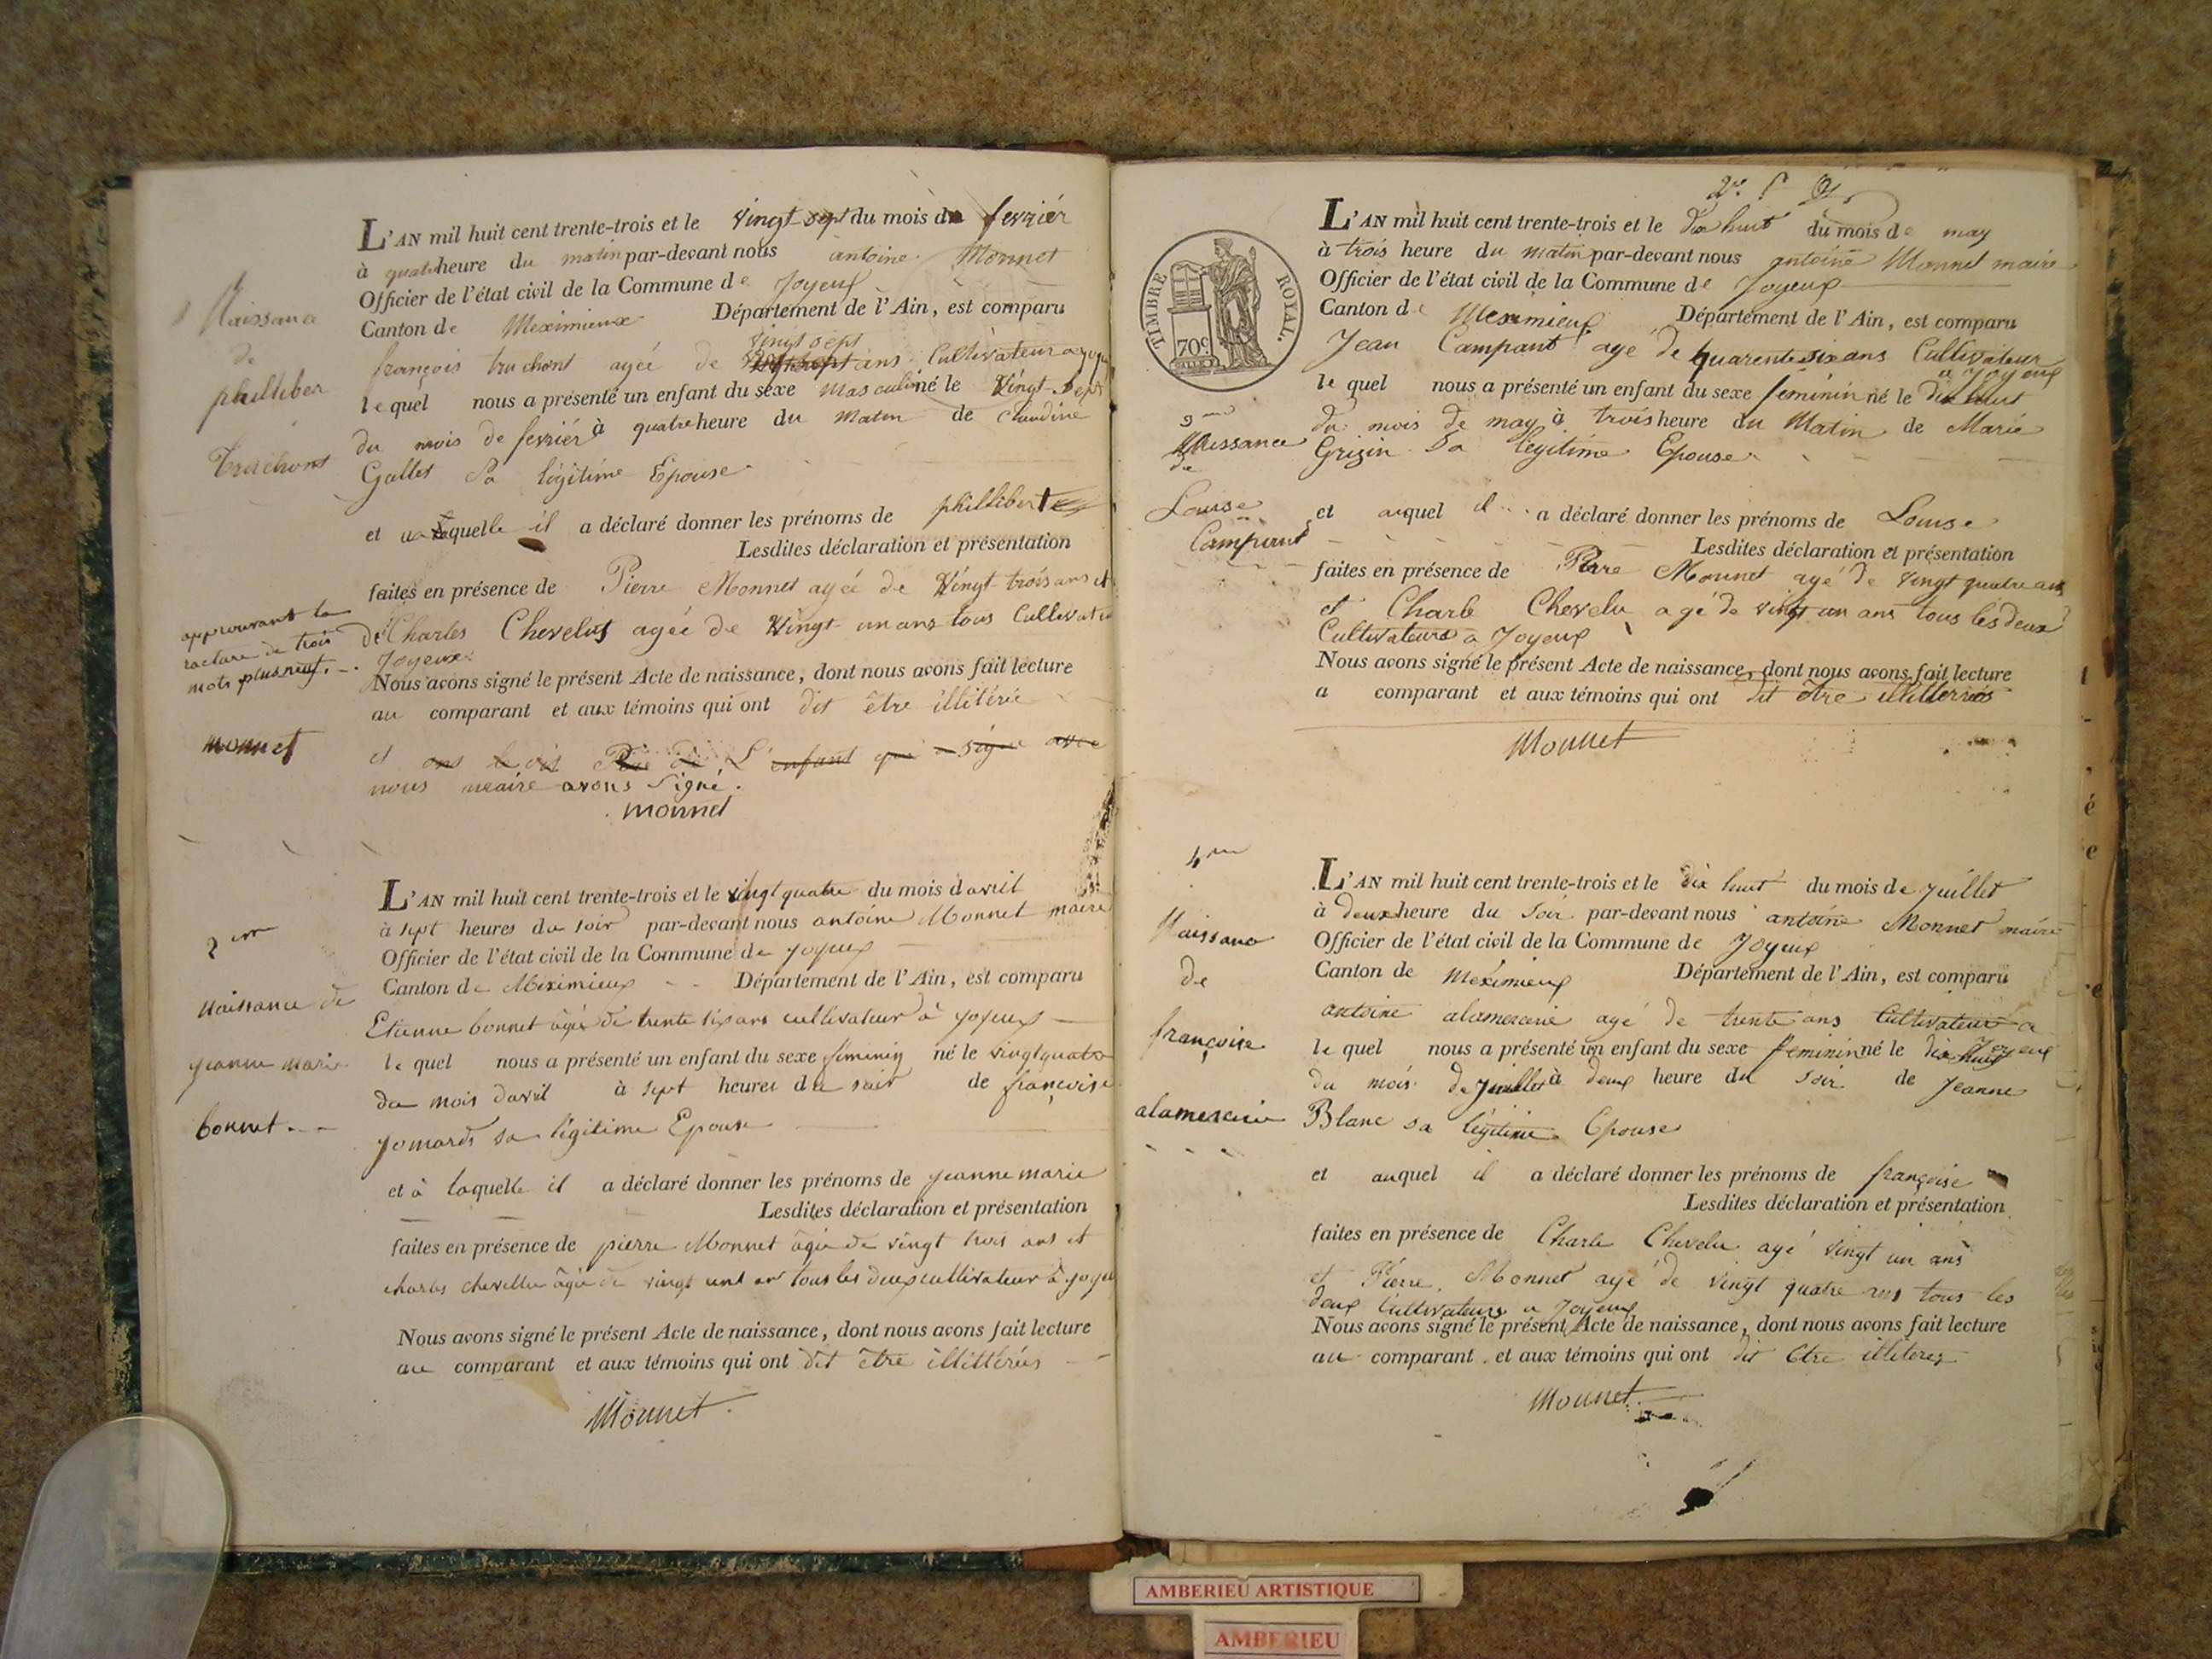 L'AN mil huit cent trente-trois et le vingt sept du mois de fevriér
à quatreheure du matin par-devant nous antoine Monnet
Officier de l'état civil de la Commune de Joyeux
Canton de Meximieux Département de l'Ain, est comparu
vingt sept
françois truchont agée de ans Cultivateur a joyeux
lequel nous a présenté un enfant du sexe masculin né le Vingt-Sept
du mois de fevriér à quatre heure du matin de claudine
Gallet Sa légitime Epouse
et a laquelle il a déclaré donner les prénoms de philliber
Lesdites déclaration et présentation
faites en présence de Pierre Monnet agée de Vingt trois ans et
de Charles Chevelus agée de Vingt un ans tous Cultivateur
Joyeux
Nous avons signé le présent Acte de naissance, dont nous avons fait lecture
au comparant et aux témoins qui ont dit être illitérée
et ons Père de L'enfant qui a signé avec
nous meaire avons Signé.
monnet
Naissance
de
philliber
Truchont
approuvant la
rature de trois
mots plus neuf.
monnet
2me
naissance de
jeanne marie
bonnet
L'AN mil huit cent trente-trois et le vingt quatre du mois davril
à sept heures du soir par-devant nous antoine Monnet maire
Officier de l'état civil de la Commune de joyeux
Canton de Meximieux Département de l'Ain, est comparu
Etienne bonnet âgée de trente six ans cultivateur à joyeux
le quel nous a présenté un enfant du sexe féminin né le vingt quatre
du mois davril à sept heures du soir de françoise
jomards sa légitime Epouse
et à laquelle il a déclaré donner les prénoms de jeanne marie
Lesdites déclaration et présentation
faites en présence de pierre Monnet âgée de vingt trois ans et
charles chevellu âgée de vingt un ans tous les deux cultivateur à joyeu
Nous avons signé le présent Acte de naissance, dont nous avons fait lecture
au comparant et aux témoins qui ont dit être illittérées
Monnet
TIMBRE ROYAL.
70c
L'AN mil huit cent trente-trois et le dix huit du mois de may
à trois heure du matin par-devant nous antoine Monnet maire
Officier de l'état civil de la Commune de Joyeux
Canton de Meximieux Département de l'Ain, est comparu
Jean Campant agé de quarente six ans Cultivateur
a Joyeux
le quel nous a présenté un enfant du sexe féminin né le dix huit
du mois de may à trois heure du Matin de Marie
Grizin Sa legitime Epouse
et auquel il a déclaré donner les prénoms de Louise
Lesdites déclaration et présentation
faites en présence de Pierre Monnet agé de vingt quatre ans
et Charle Chevelu agé de vingt un ans tous les deux
Cultivateurs a Joyeux
Nous avons signé le présent Acte de naissance, dont nous avons fait lecture
a comparant et aux témoins qui ont dit être illitterrés
Monnet
3me
Naissance
de
Louise
Campant
4me
Naissance
de
françoise
alamercerie
L'AN mil huit cent trente-trois et le dix huit du mois de juillet
à deux heure du soir par-devant nous antoine Monnet maire
Officier de l'état civil de la Commune de Joyeux
Canton de Meximieux Département de l'Ain, est comparu
antoine alamercerie agé de trente ans Cultivateur a
Joyeux
le quel nous a présenté un enfant du sexe feminin né le dix huit
du mois de juillet à deux heure du soir de Jeanne
Blanc sa légitime Epouse
et auquel il a déclaré donner les prénoms de françoise
Lesdites déclaration et présentation
faites en présence de Charle Chevelu agé vingt un ans
et Pierre Monnet agé de vingt quatre ans tous les
deux Cultivateurs a Joyeux
Nous avons signé le présent Acte de naissance, dont nous avons fait lecture
au comparant et aux témoins qui ont dit être illiterez
Monnet
AMBERIEU ARTISTIQUE
AMBERIEU